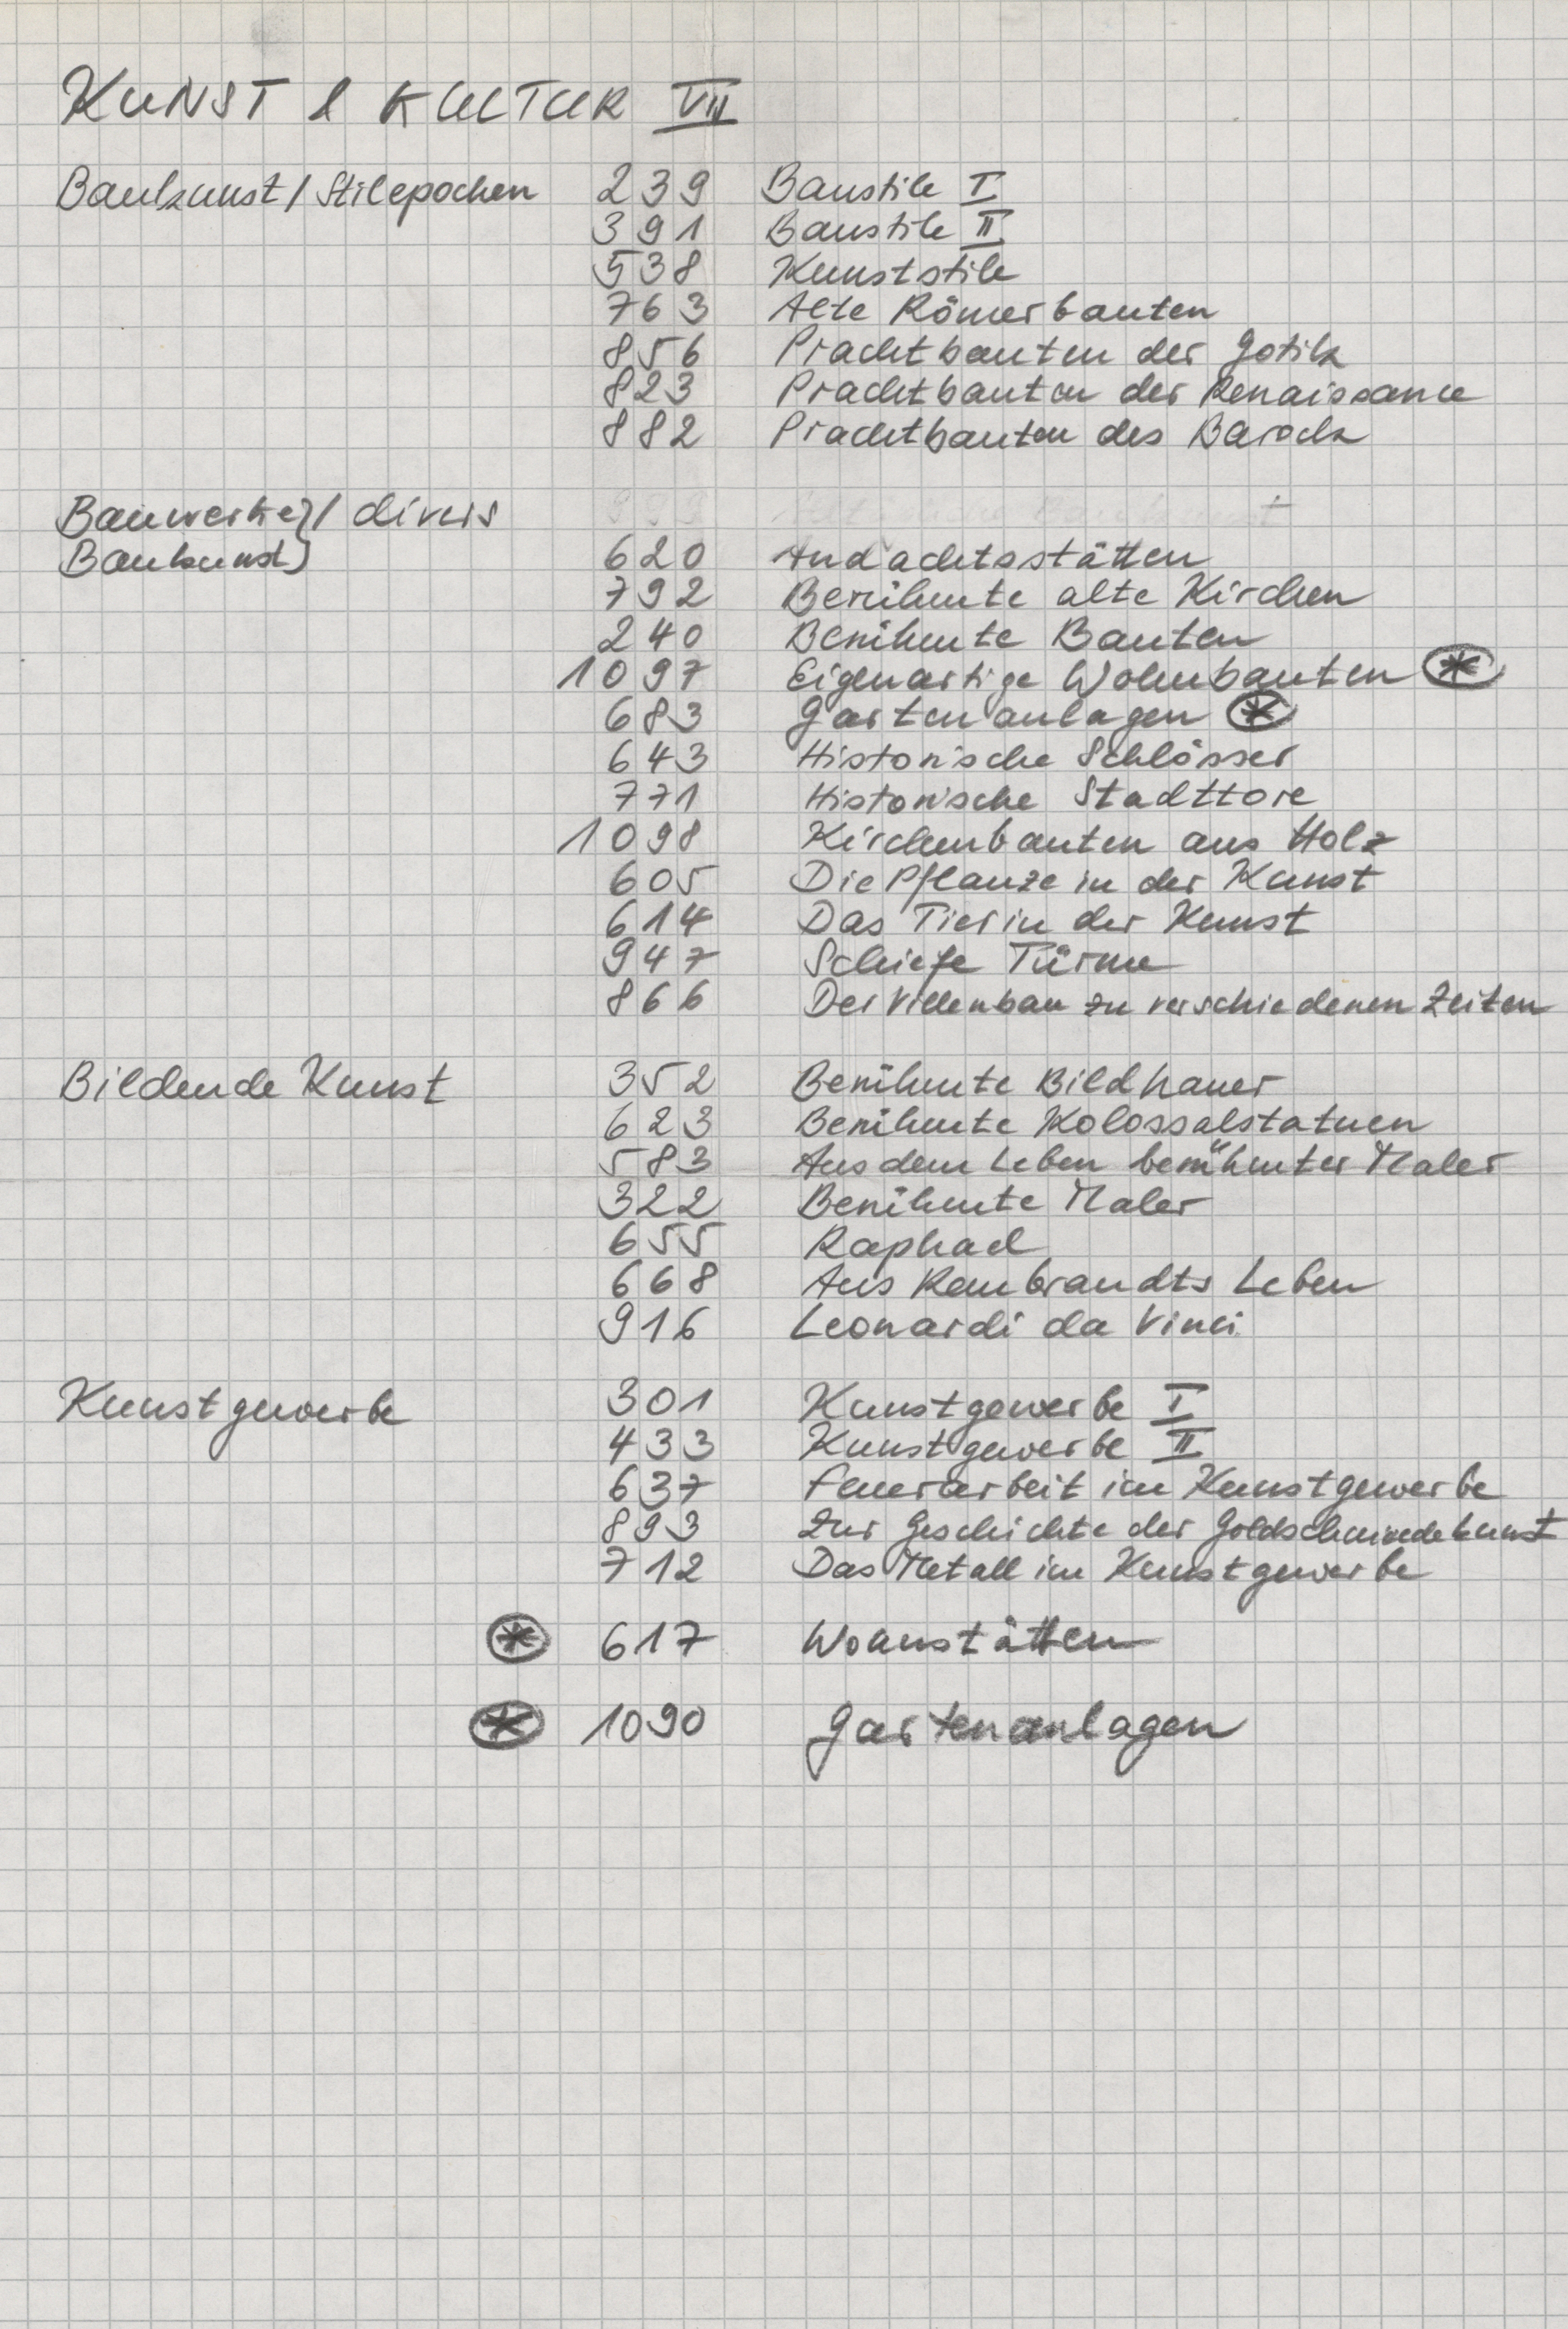 KUNST & KULTUR VII
Baukunst / Stilepochen 239 Baustile I
391 Baustile II
538 Kunststile
763 Alte Römerbauten
856 Prachtbauten der Gotik
823 Prachtbauten der Renaissance
882 Prachtbauten des Barock
Bauwerke } / divers
Baukunst } 620 Andachtsstätten
792 Berühmte alte Kirchen
240 Berühmte Bauten
1097 Eigenartige Wohnbauten *
683 Gartenanlagen *
643 Historische Schlösser
771 Historische Stadttore
1098 Kirchenbauten aus Holz
605 Die Pflanze in der Kunst
614 Das Tier in der Kunst
947 Schiefe Türme
866 Der Villenbau zu verschiedenen Zeiten
Bildende Kunst 352 Berühmte Bildhauer
623 Berühmte Kolossalstatuen
583 Aus dem Leben berühmter Maler
322 Berühmte Maler
655 Raphael
668 Aus Rembrandts Leben
916 Leonardi da Vinci
Kunstgewerbe 301 Kunstgewerbe I
433 Kunstgewerbe II
637 Feuerarbeit im Kunstgewerbe
893 Zur Geschichte der Goldschmiedekunst
712 Das Metall im Kunstgewerbe
* 617 Wohnstätten
* 1090 Gartenanlagen